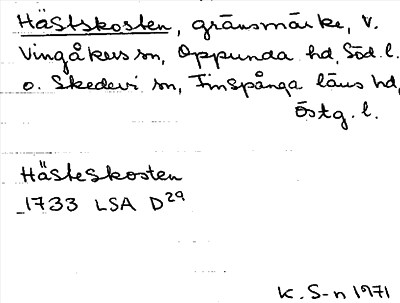 Hästskosten, gränsmärke, V.
Vingåkers sn, Oppunda hd, Söd. l.
o. Skedevi sn, Finspånga läns hd,
Östg. l.
Hästeskosten
1733 LSA D29
K. S-n 1971